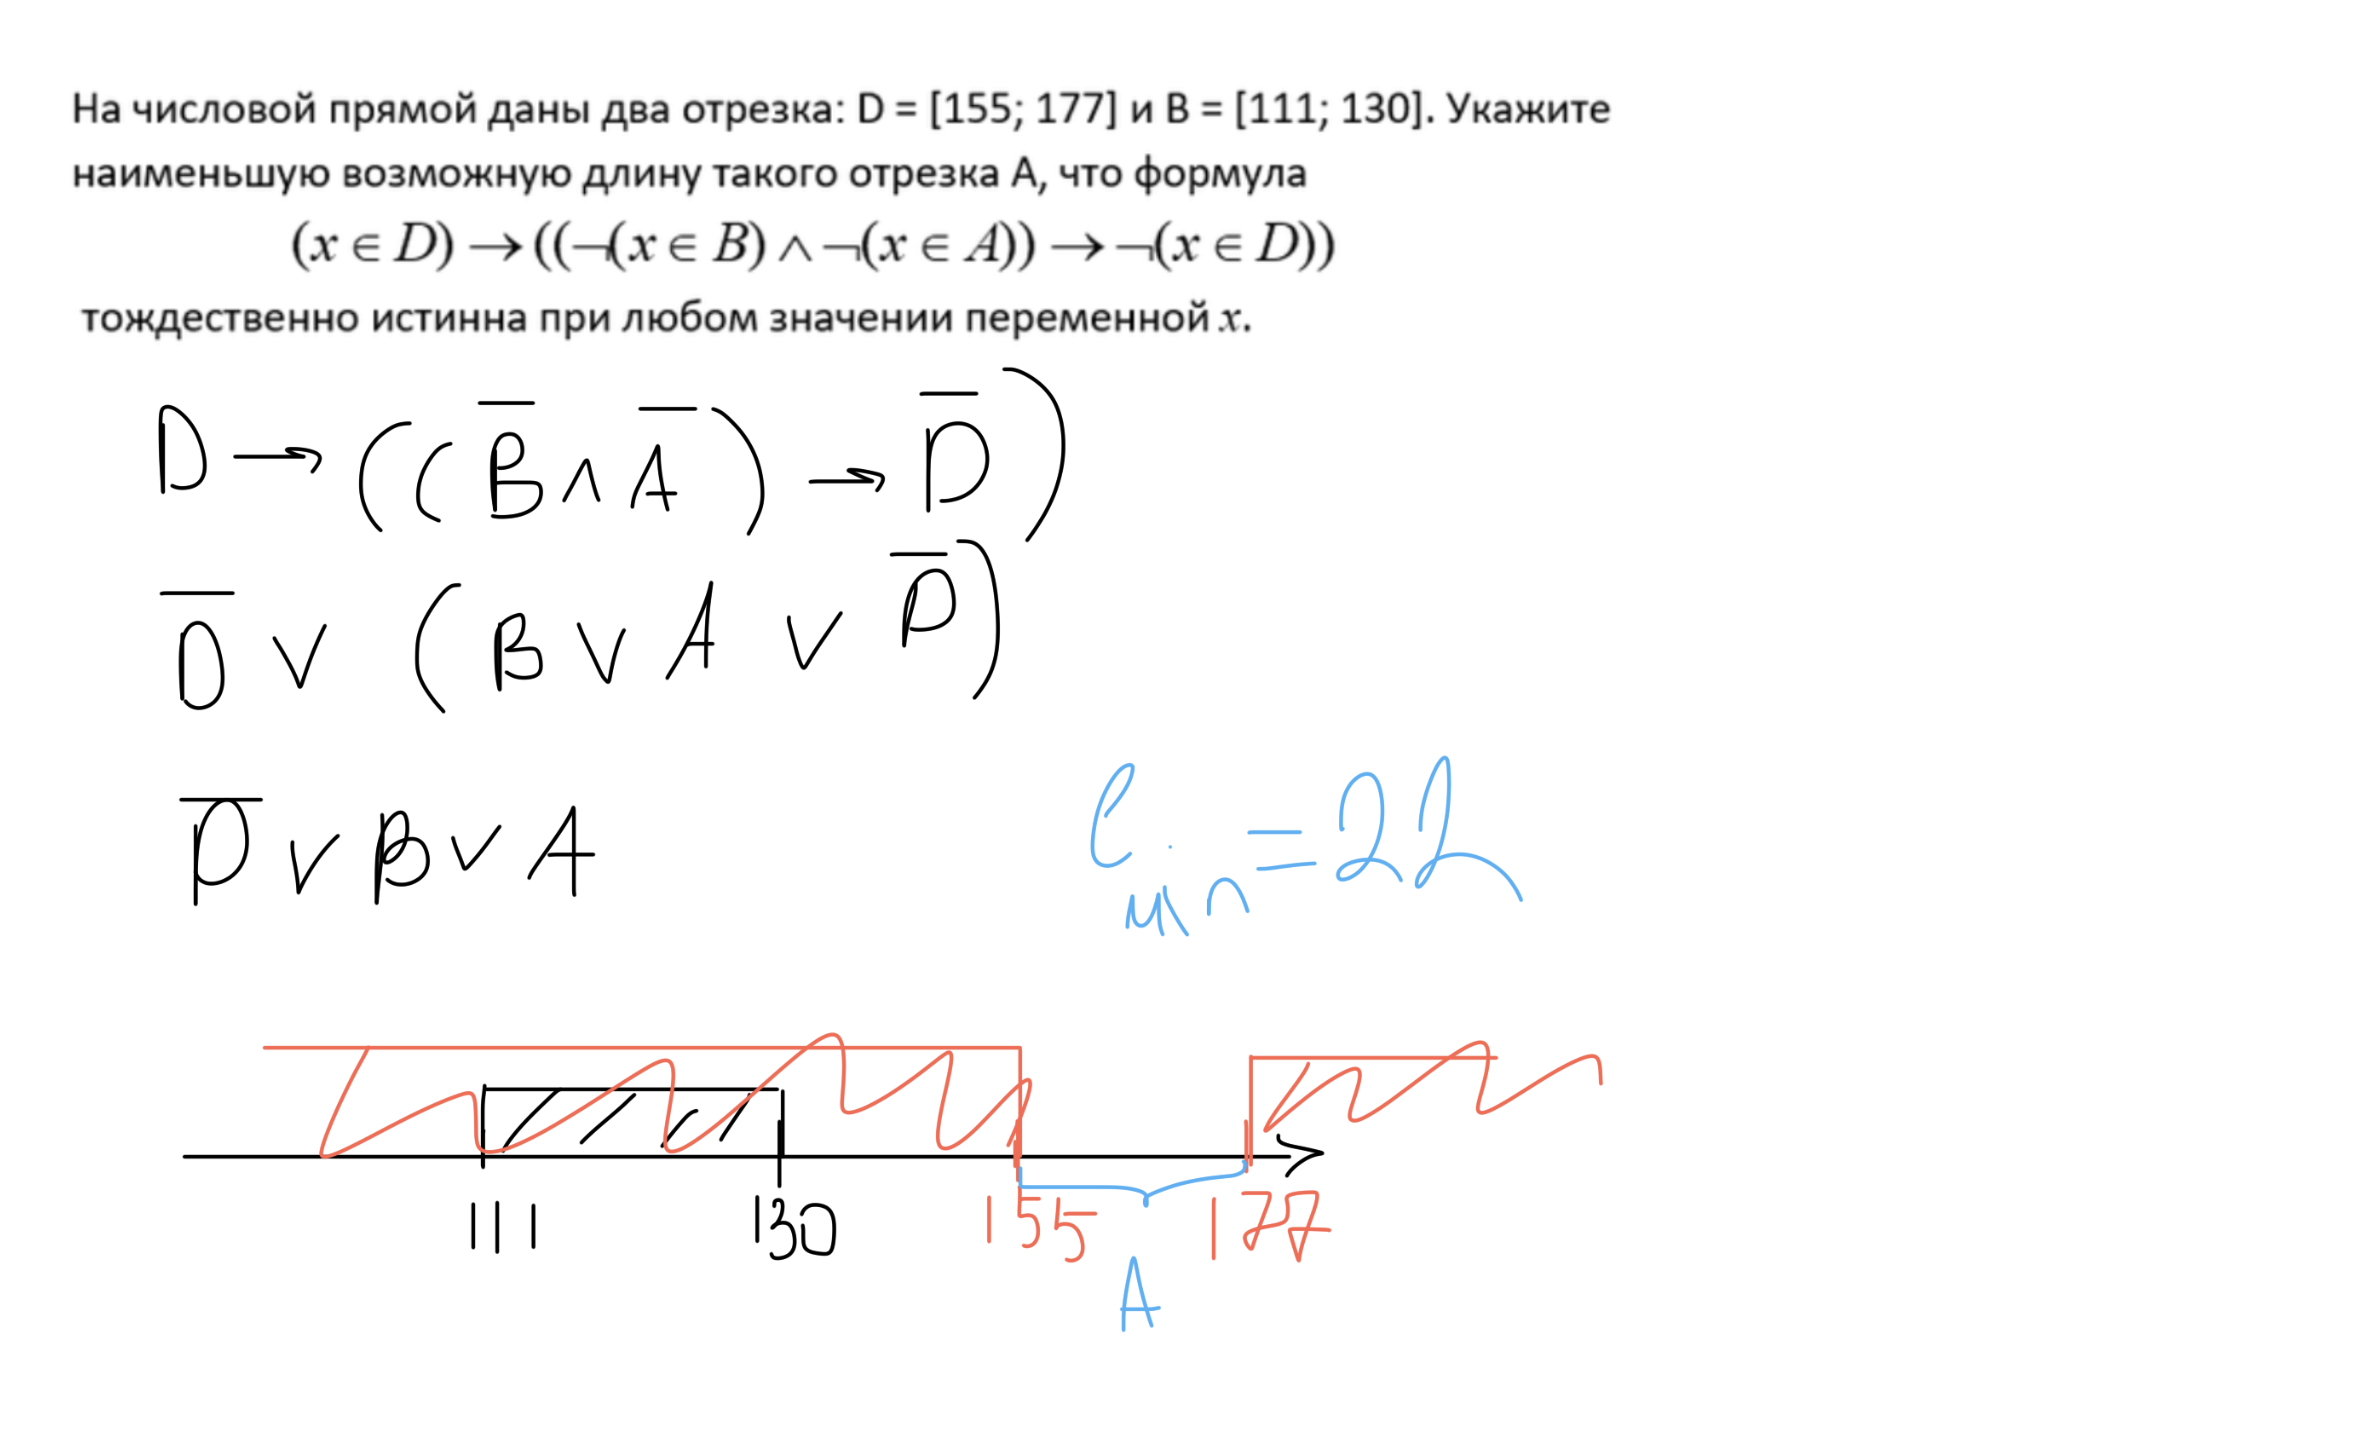 На числовой прямой даны два отрезка: D = [155; 177] и B = [111; 130]. Укажите
наименьшую возможную длину такого отрезка A, что формула
(x ∈ D) → ((¬(x ∈ B) ∧ ¬(x ∈ A)) → ¬(x ∈ D))
тождественно истинна при любом значении переменной x.
D → ((B̅ ∧ A̅) → D̅)
D̅ ∨ (B ∨ A ∨ D̅)
D̅ ∨ B ∨ A
l min = 22
111 130 155 177
A